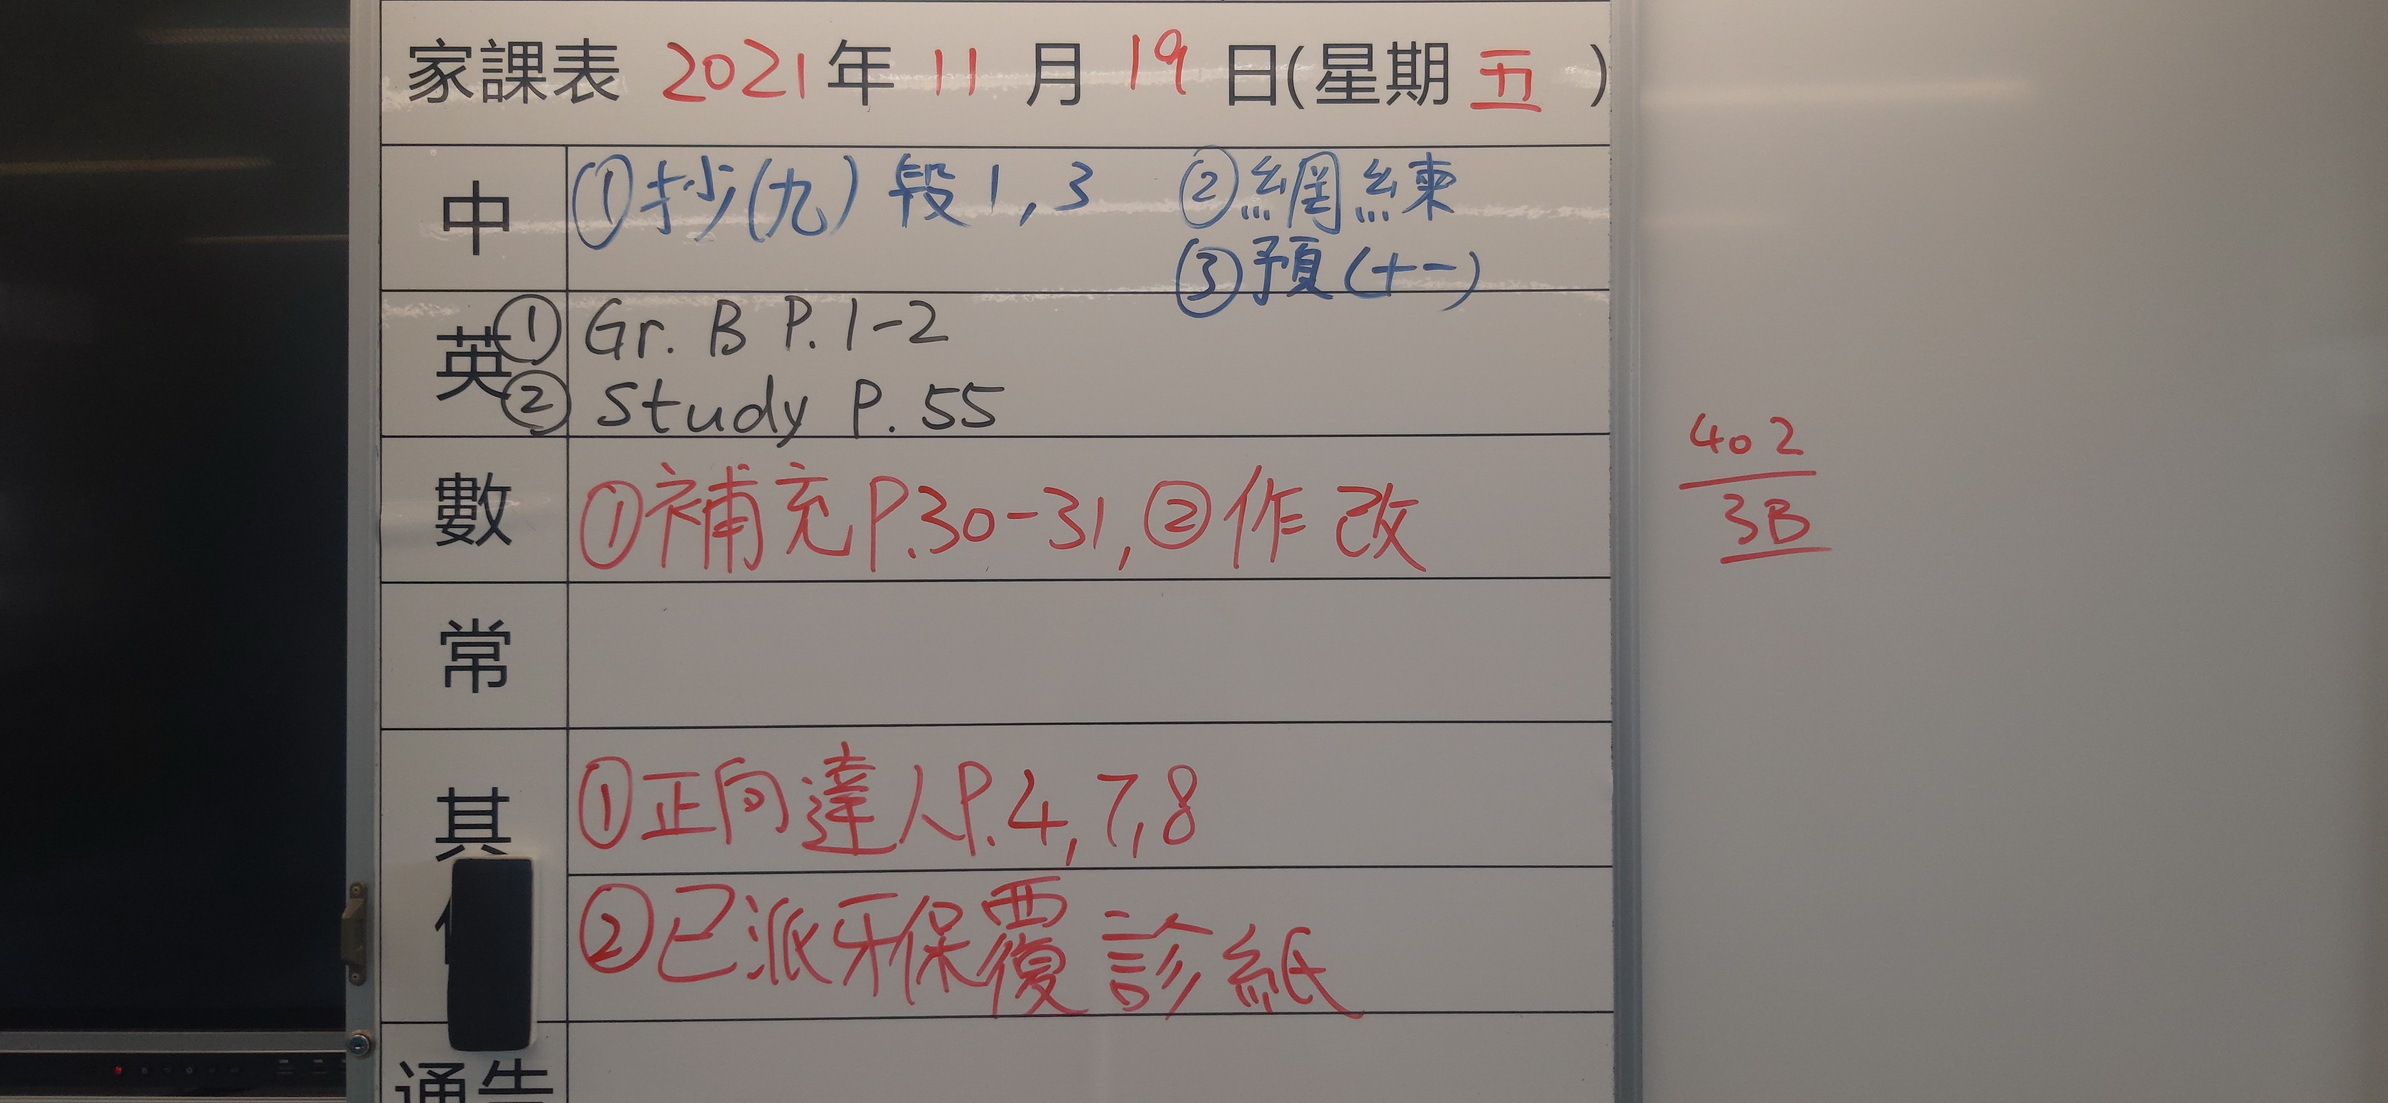 家課表 2021年 11月 19日(星期五)
中 ①抄(九)段1,3 ②網練
③預(十一)
英 ① Gr. B P. 1-2
② Study P. 55
數 ①補充P.30-31, ②作改
402
3B
常
其 ①正向達人P.4,7,8
②已派牙保覆診紙
通告